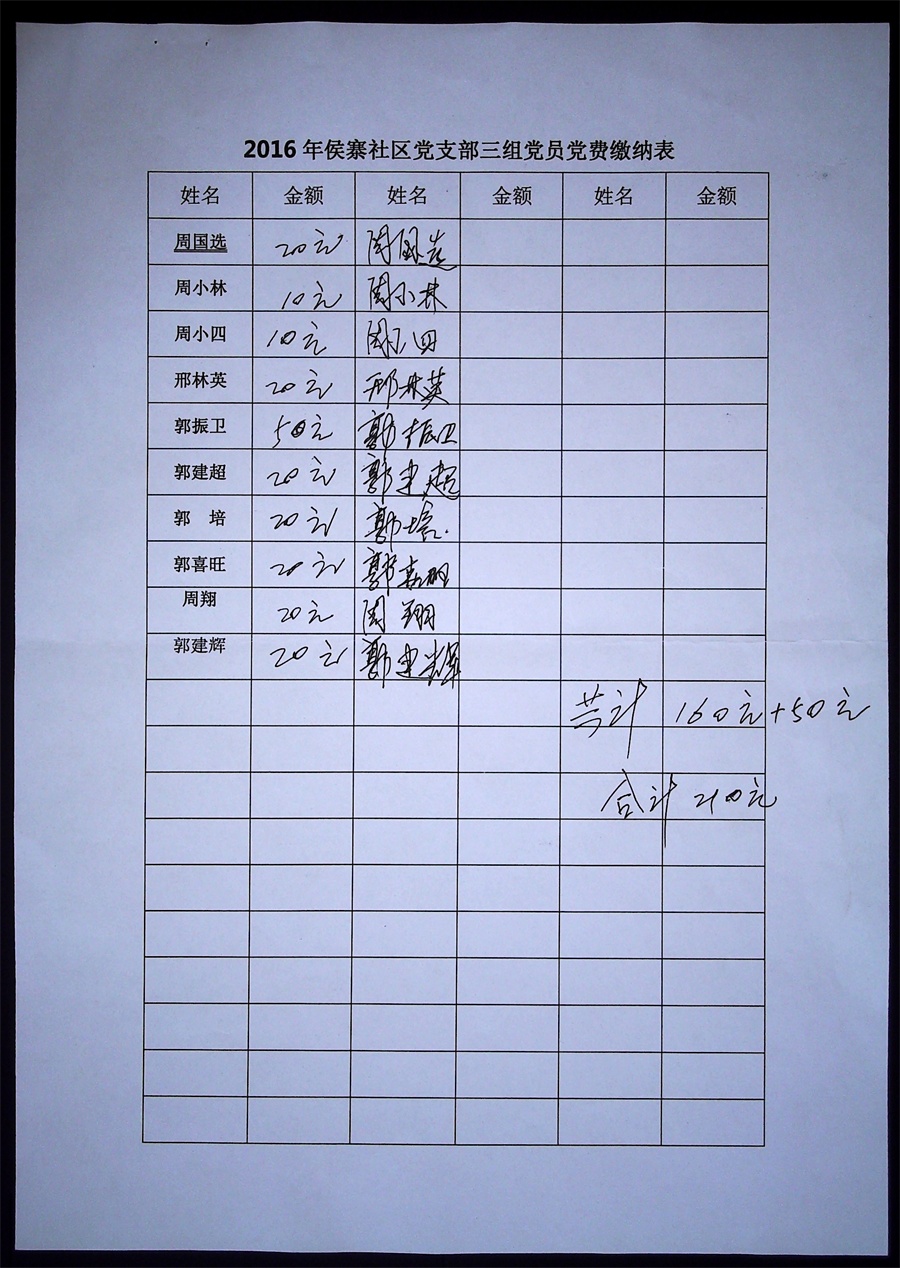 2016 年侯寨社区党支部三组党员党费缴纳表
姓名 金额 姓名 金额 姓名 金额
周国选 20元 周国选
周小林 10元 周小林
周小四 10元 周小四
邢林英 20元 邢林英
郭振卫 50元 郭振卫
郭建超 20元 郭建超
郭 培 20元 郭培
郭喜旺 20元 郭喜旺
周翔 20元 周翔
郭建辉 20元 郭建辉
共计 160元+50元
合计 210元